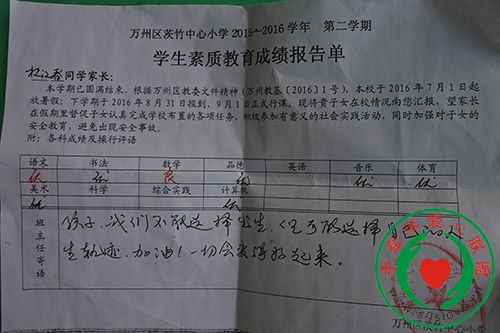 万州区茨竹中心小学 2015-2016 学年 第二学期
学生素质教育成绩报告单
同学家长：
本学期已圆满结束。根据万州区教委文件精神（万州教基【2016】1号），本校于 2016 年 7 月 1 日起
放暑假；下学期于 2016 年 8 月 31 日报到，9 月 1 日正式行课。现将贵子女在校情况向您汇报，望家长
在假期里督促子女认真完成学校布置的各项任务，积极参加有意义的社会实践活动，同时加强对子女的
安全教育，避免出现安全事故。
附：各科成绩及操行评语
语文 书法 数学 品德 英语 音乐 体育
优 优 良 优 优 优
美术 科学 综合实践 计算机
优 优
班主任寄语
孩子，我们不能选择出生，但可以选择自己的人
生轨迹。加油！一切会变得好起来。
万州区茨竹中心小